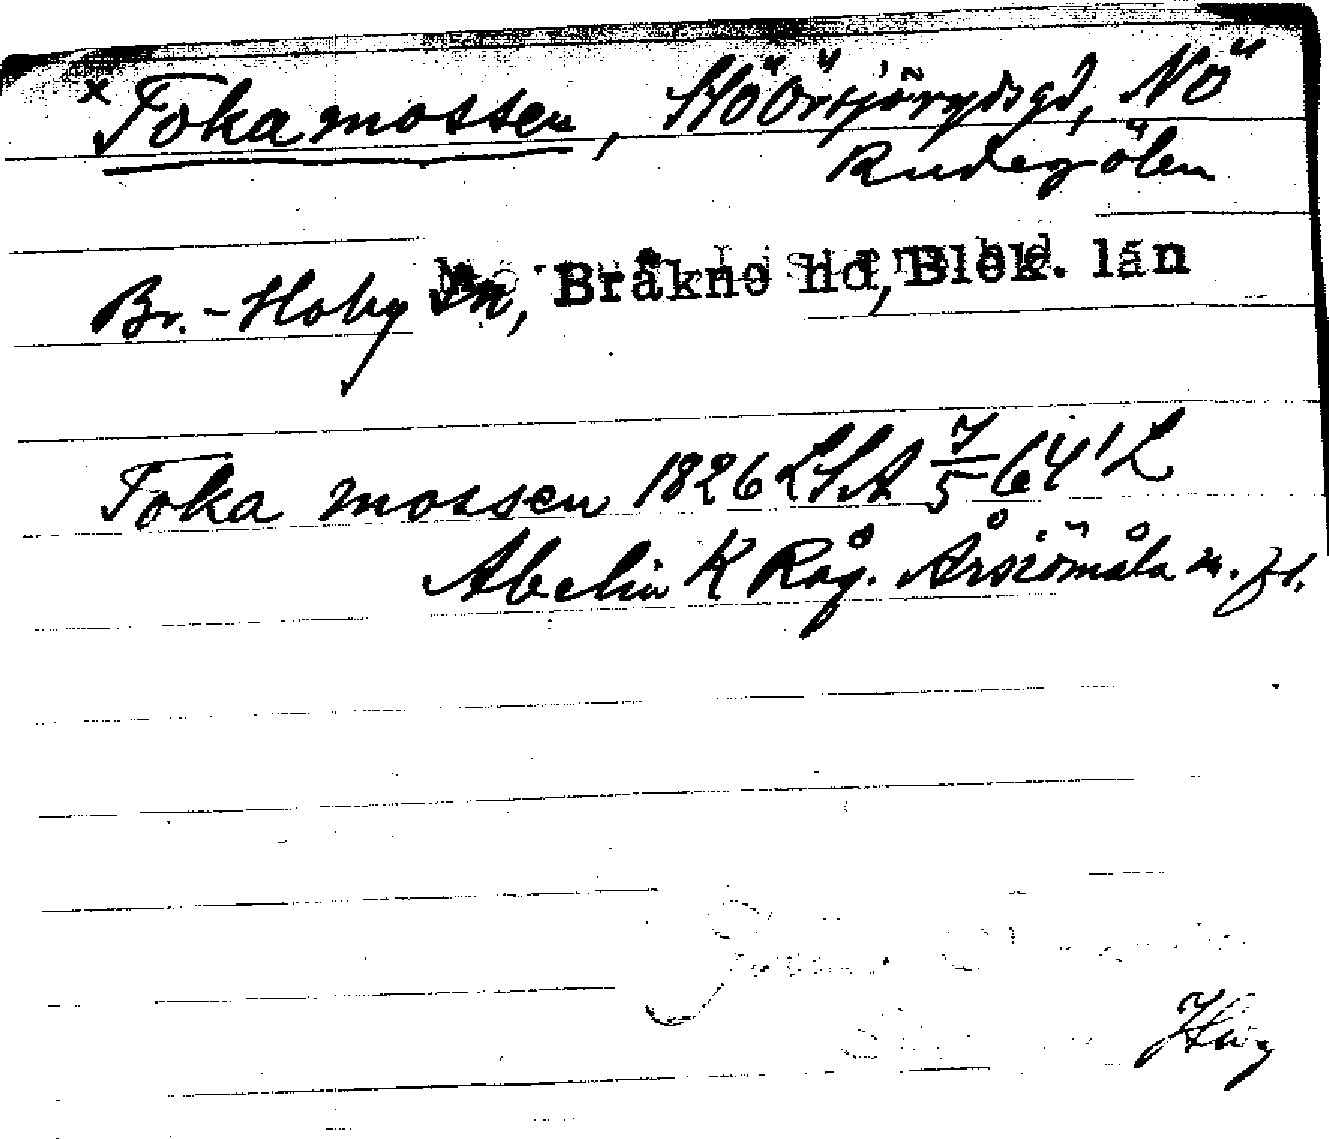 × Tokamossen, StöÖrsjörydsgd, NÖ
Rudegölen
Br.-Hoby sn, Bräkne hd, Blek. län
Toka mossen 1826 LSA 7/5 64'L
Abelin K Råg. Årsjömåla m. fl.